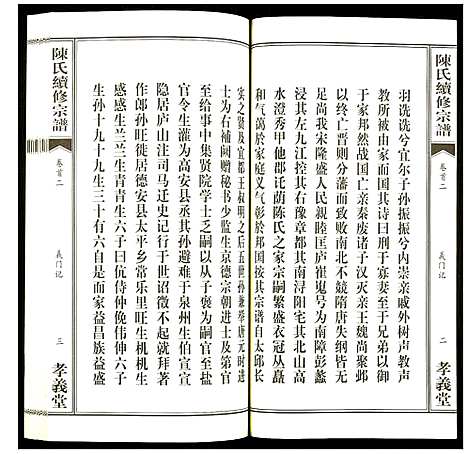 陳氏續修宗譜
卷首二
義门记
二
孝義堂
羽诜诜兮宜尔子孙振振兮内崇亲戚外树声教声
教所被由家而国其诗曰刑于寡妻至于兄弟以御
于家邦然战国亡亲秦废诸子汉灭亲王魏尚聚邺
由终亡晋则分藩而致南北不兢隋唐失纲皆
足尚我未宋隆盛人民親睦匡庐崔嵬号为南彭蠡
浸其左九江控其右豫章都其南浔阳宅其北山高
水澄秀甲他郡迁荫陈氏之家宗嗣繁盛衣冠丛矗
和气蔼於家庭义气彰於邦国按其宗谱自太邱长
陳氏續修宗譜
卷首二
義门记
三
孝義堂
实之贤及宜都王叔明之後五世孙兼举唐元时进
士为右補阙赠秘书少监生京德宗朝进士及第官
至给事中集贤院学士乏嗣以从子褒为嗣官至盐
官令生灌为高安县丞其孙避难于泉州生伯宣
隐居庐山注司马迁记行於世诏徵不起就拜
作郎孙旺徙居德安县太平乡常乐里旺生机机生
感感生兰兰生青青生六子曰伉侍仲俛伟伸六子
生孙十九十九生三十有六自是而家益昌族益盛